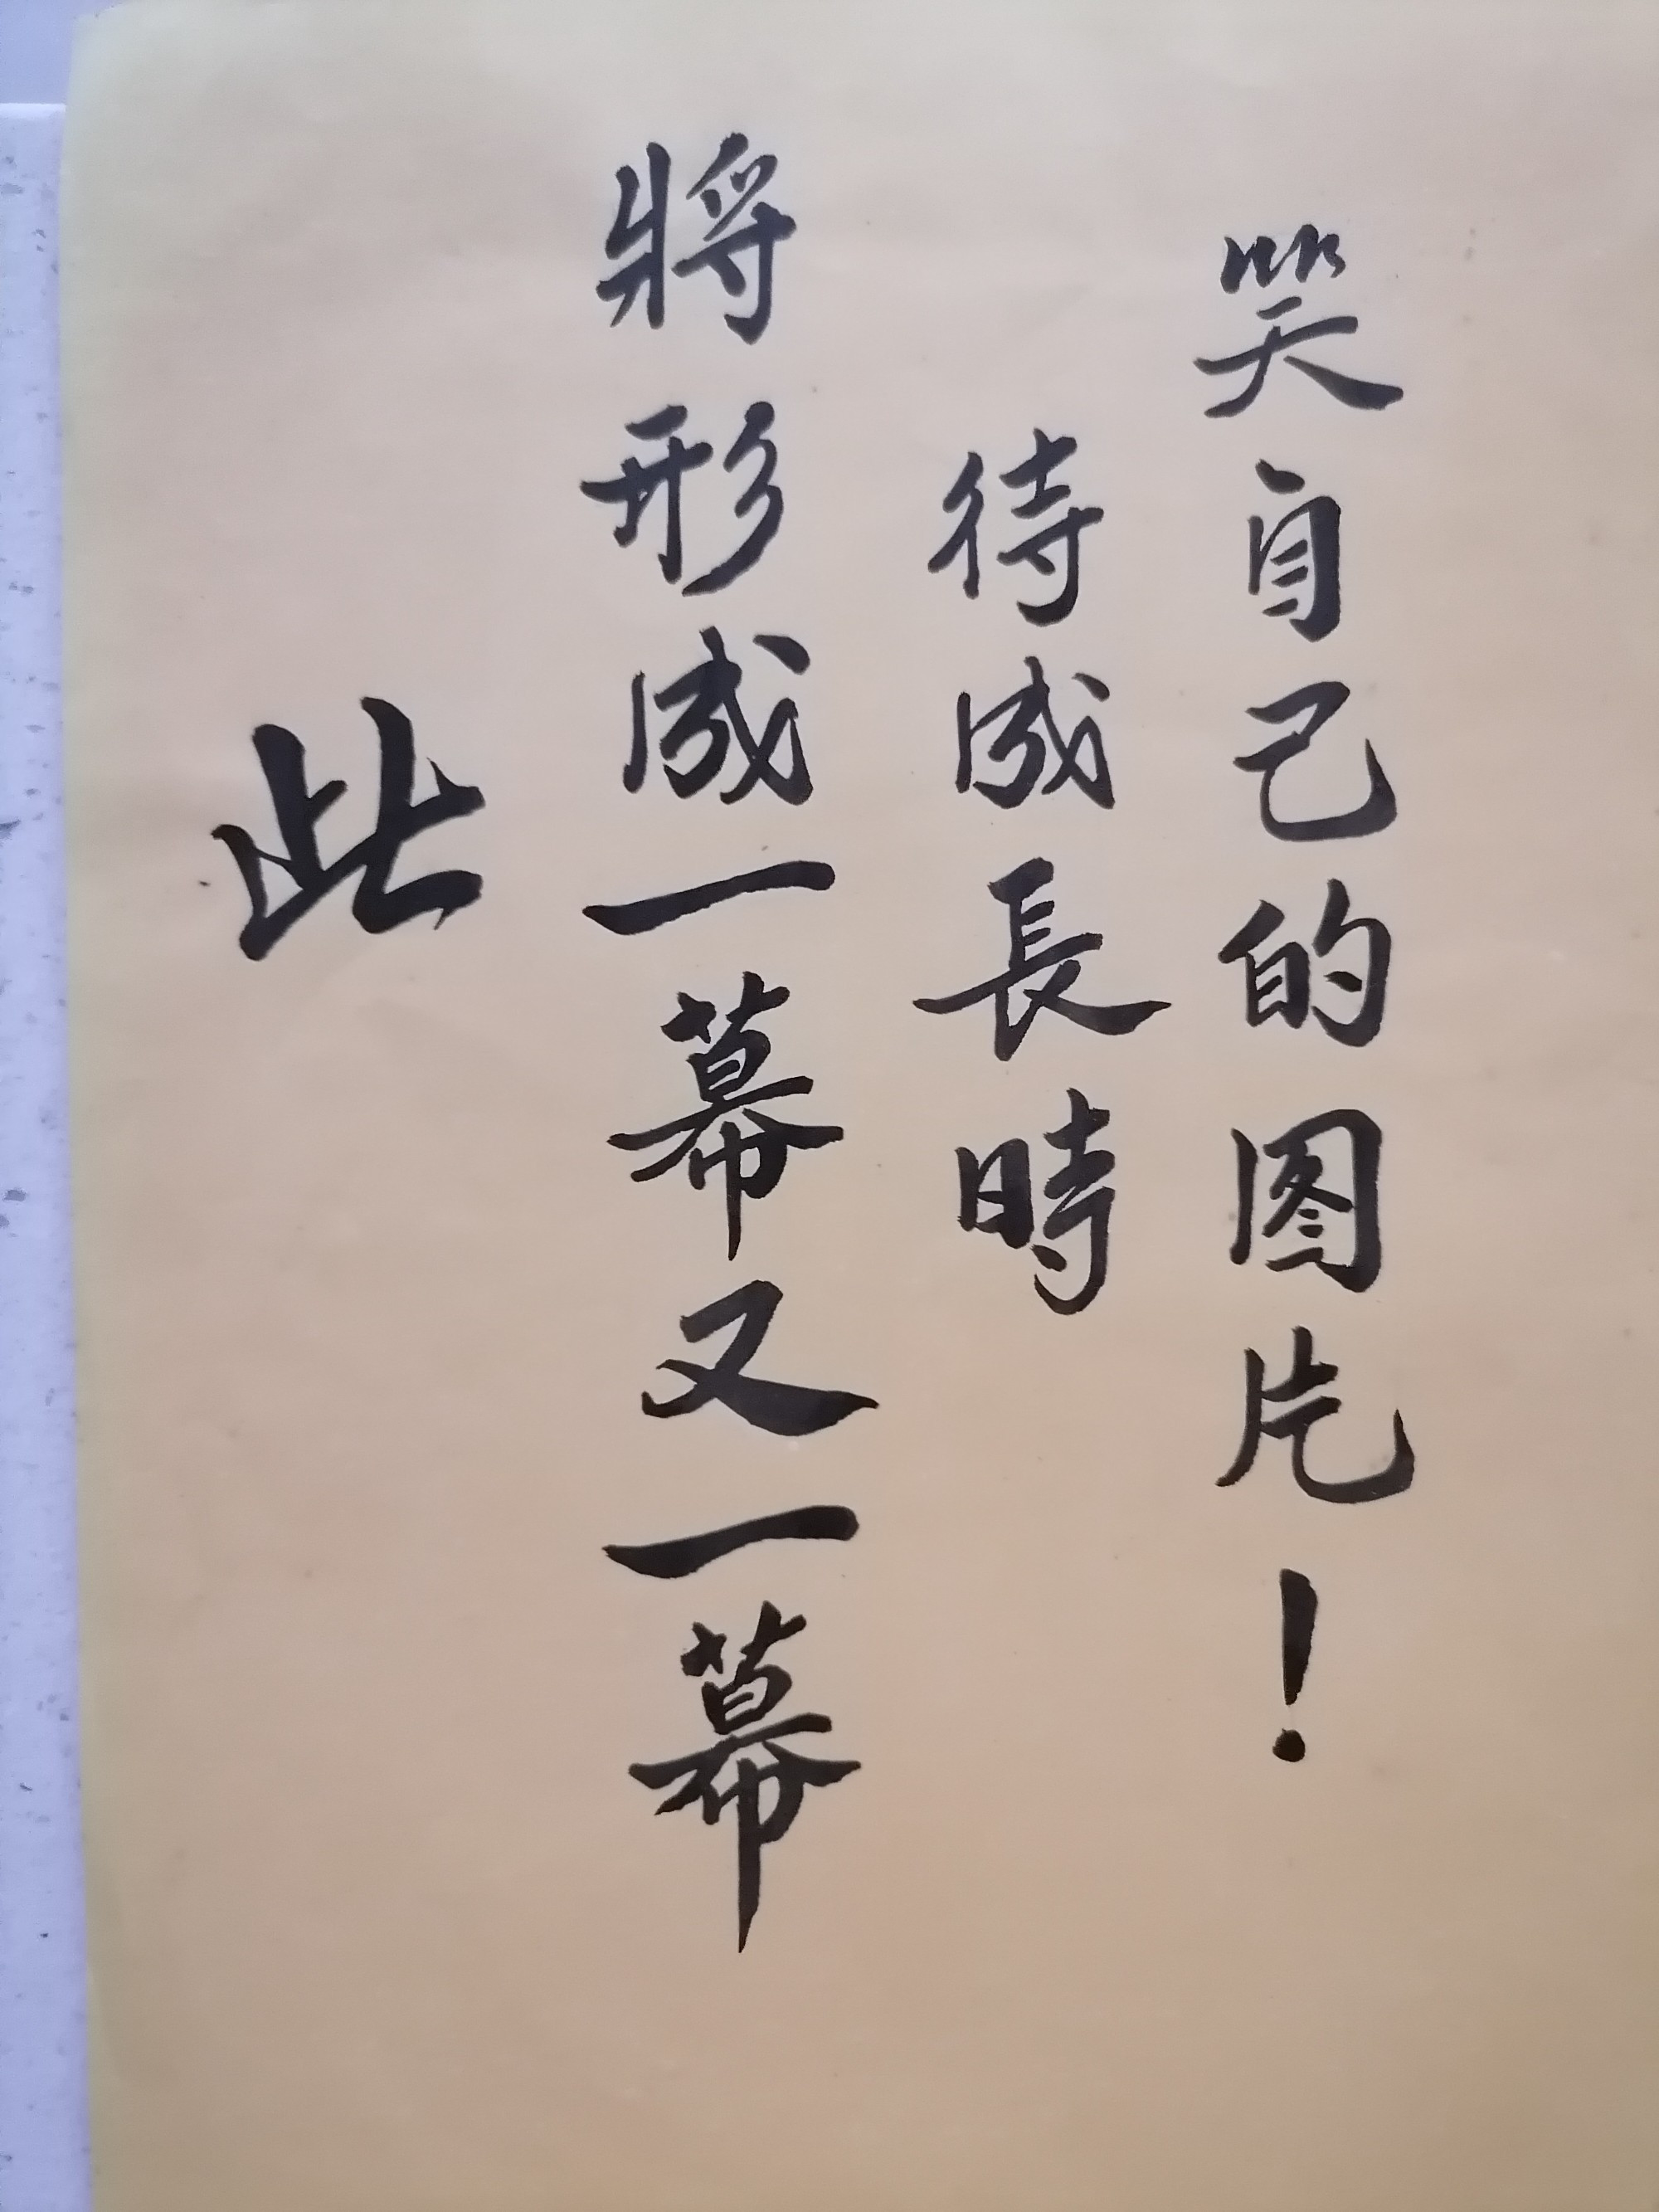 笑自己的图片！
待成長時
將形成一幕又一幕
此